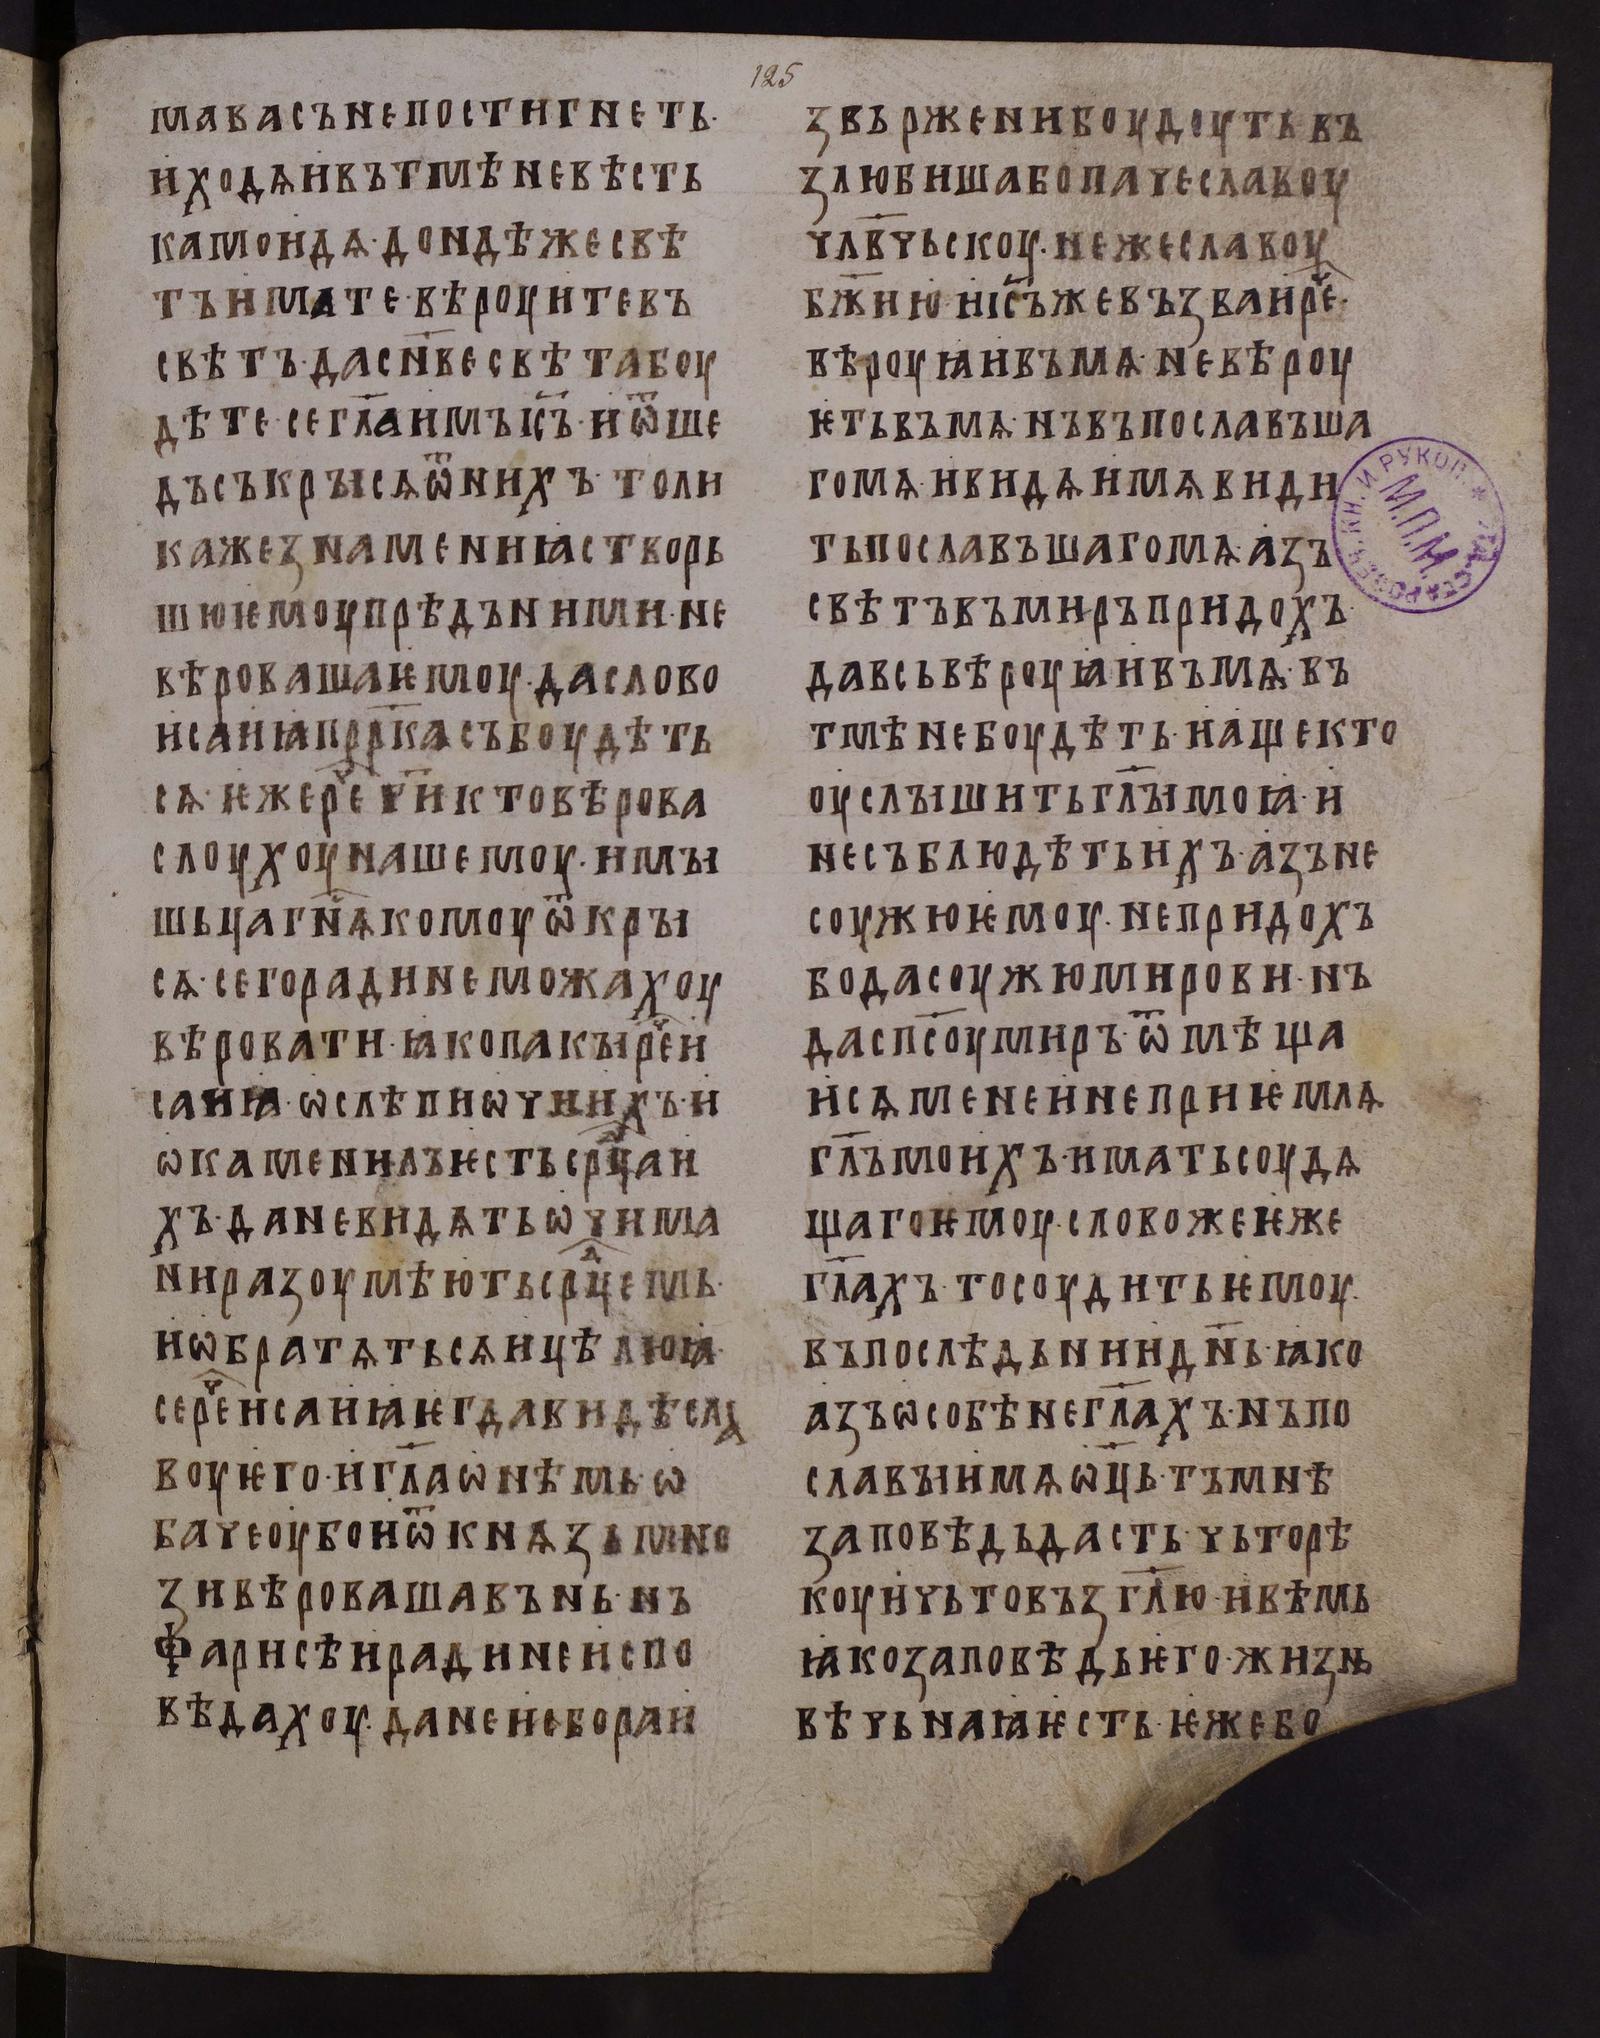 125
мавасънепостигнеть·
иходѧивътмѣневѣсть
камоидѧ·дондѣжесвѣ
тъимате·вѣроуитевъ
свѣтъ·дасн҃весвѣтабоу
дѣте·сегл҃аимъіс҃ъ·иѿше
дъсъкрысѧѿнихъ·толи
кажезнамениꙗстворь
шюѥмоупрѣдъними·не
вѣровашаѥмоу·даслово
исаиꙗпррк҃асъбоудѣть
сѧ·ѥжерече҃ гикⷮтовѣрова
слоухоунашемоу·имы
шьцагн҃ѧкомоуѿкры
сѧ·сегорадинеможахоу
вѣровати·ꙗкопакырⷱеи
саиꙗ·ѡслѣпиѡчиихъ·и
ѡкаменилъѥстьсрⷣцаи
хъ·даневидѧтьѡчима
ниразоумѣютьсрⷣцемь·
иѡбратѧтьсѧицѣлюꙗ·
серⷱеисаиꙗѥгдавидѣсла
воуѥго·игл҃аѡнѣмь·ѡ
бачеоубоиѿкнѧзьмно
зивѣровашавънь·нъ
фарисѣирадинеиспо
вѣдахоу·данеиеборъи
звьрженибоудоутьвъ
злюбишабопачеславоу
чл҃вчьскоу·нежеславоу
бж҃ию·иіс҃ъжевъзваирⷱе·
вѣроуꙗивъмѧ·невѣроу
ѥтьвъмѧ·нъвъпославъша
гомѧ·ивидѧимѧвиди
тьпославъшагомѧ·азъ
свѣтъвъмиръпридохъ·
давсьвѣроуꙗивъмѧ·въ
тмѣнебоудѣть·иащекто
оуслышитьгл҃ымоꙗ·и
несъблюдѣтьихъ·азъне
соужюѥмоу·непридохъ
бодасоужюмирови·нъ
даспс҃оумиръ·ѿмѣща
исѧменеинеприѥмлѧ
гл҃ъмоихъ·иматьсоудѧ
щагоѥмоу·словожеѥже
гл҃ахъ·тосоудитьѥмоу·
въпослѣдьниидн҃ь·ꙗко
азъѡсобѣнегл҃ахъ·нъпо
славыимѧѡц҃ь·тъмнѣ
заповѣдьдасть·чьторѣ
коуичьтовъзгл҃ю·ивѣмь
ꙗкозаповѣдьѥго·жизнь
вѣчьнаꙗѥсть·ѥжебо
М.П.И.